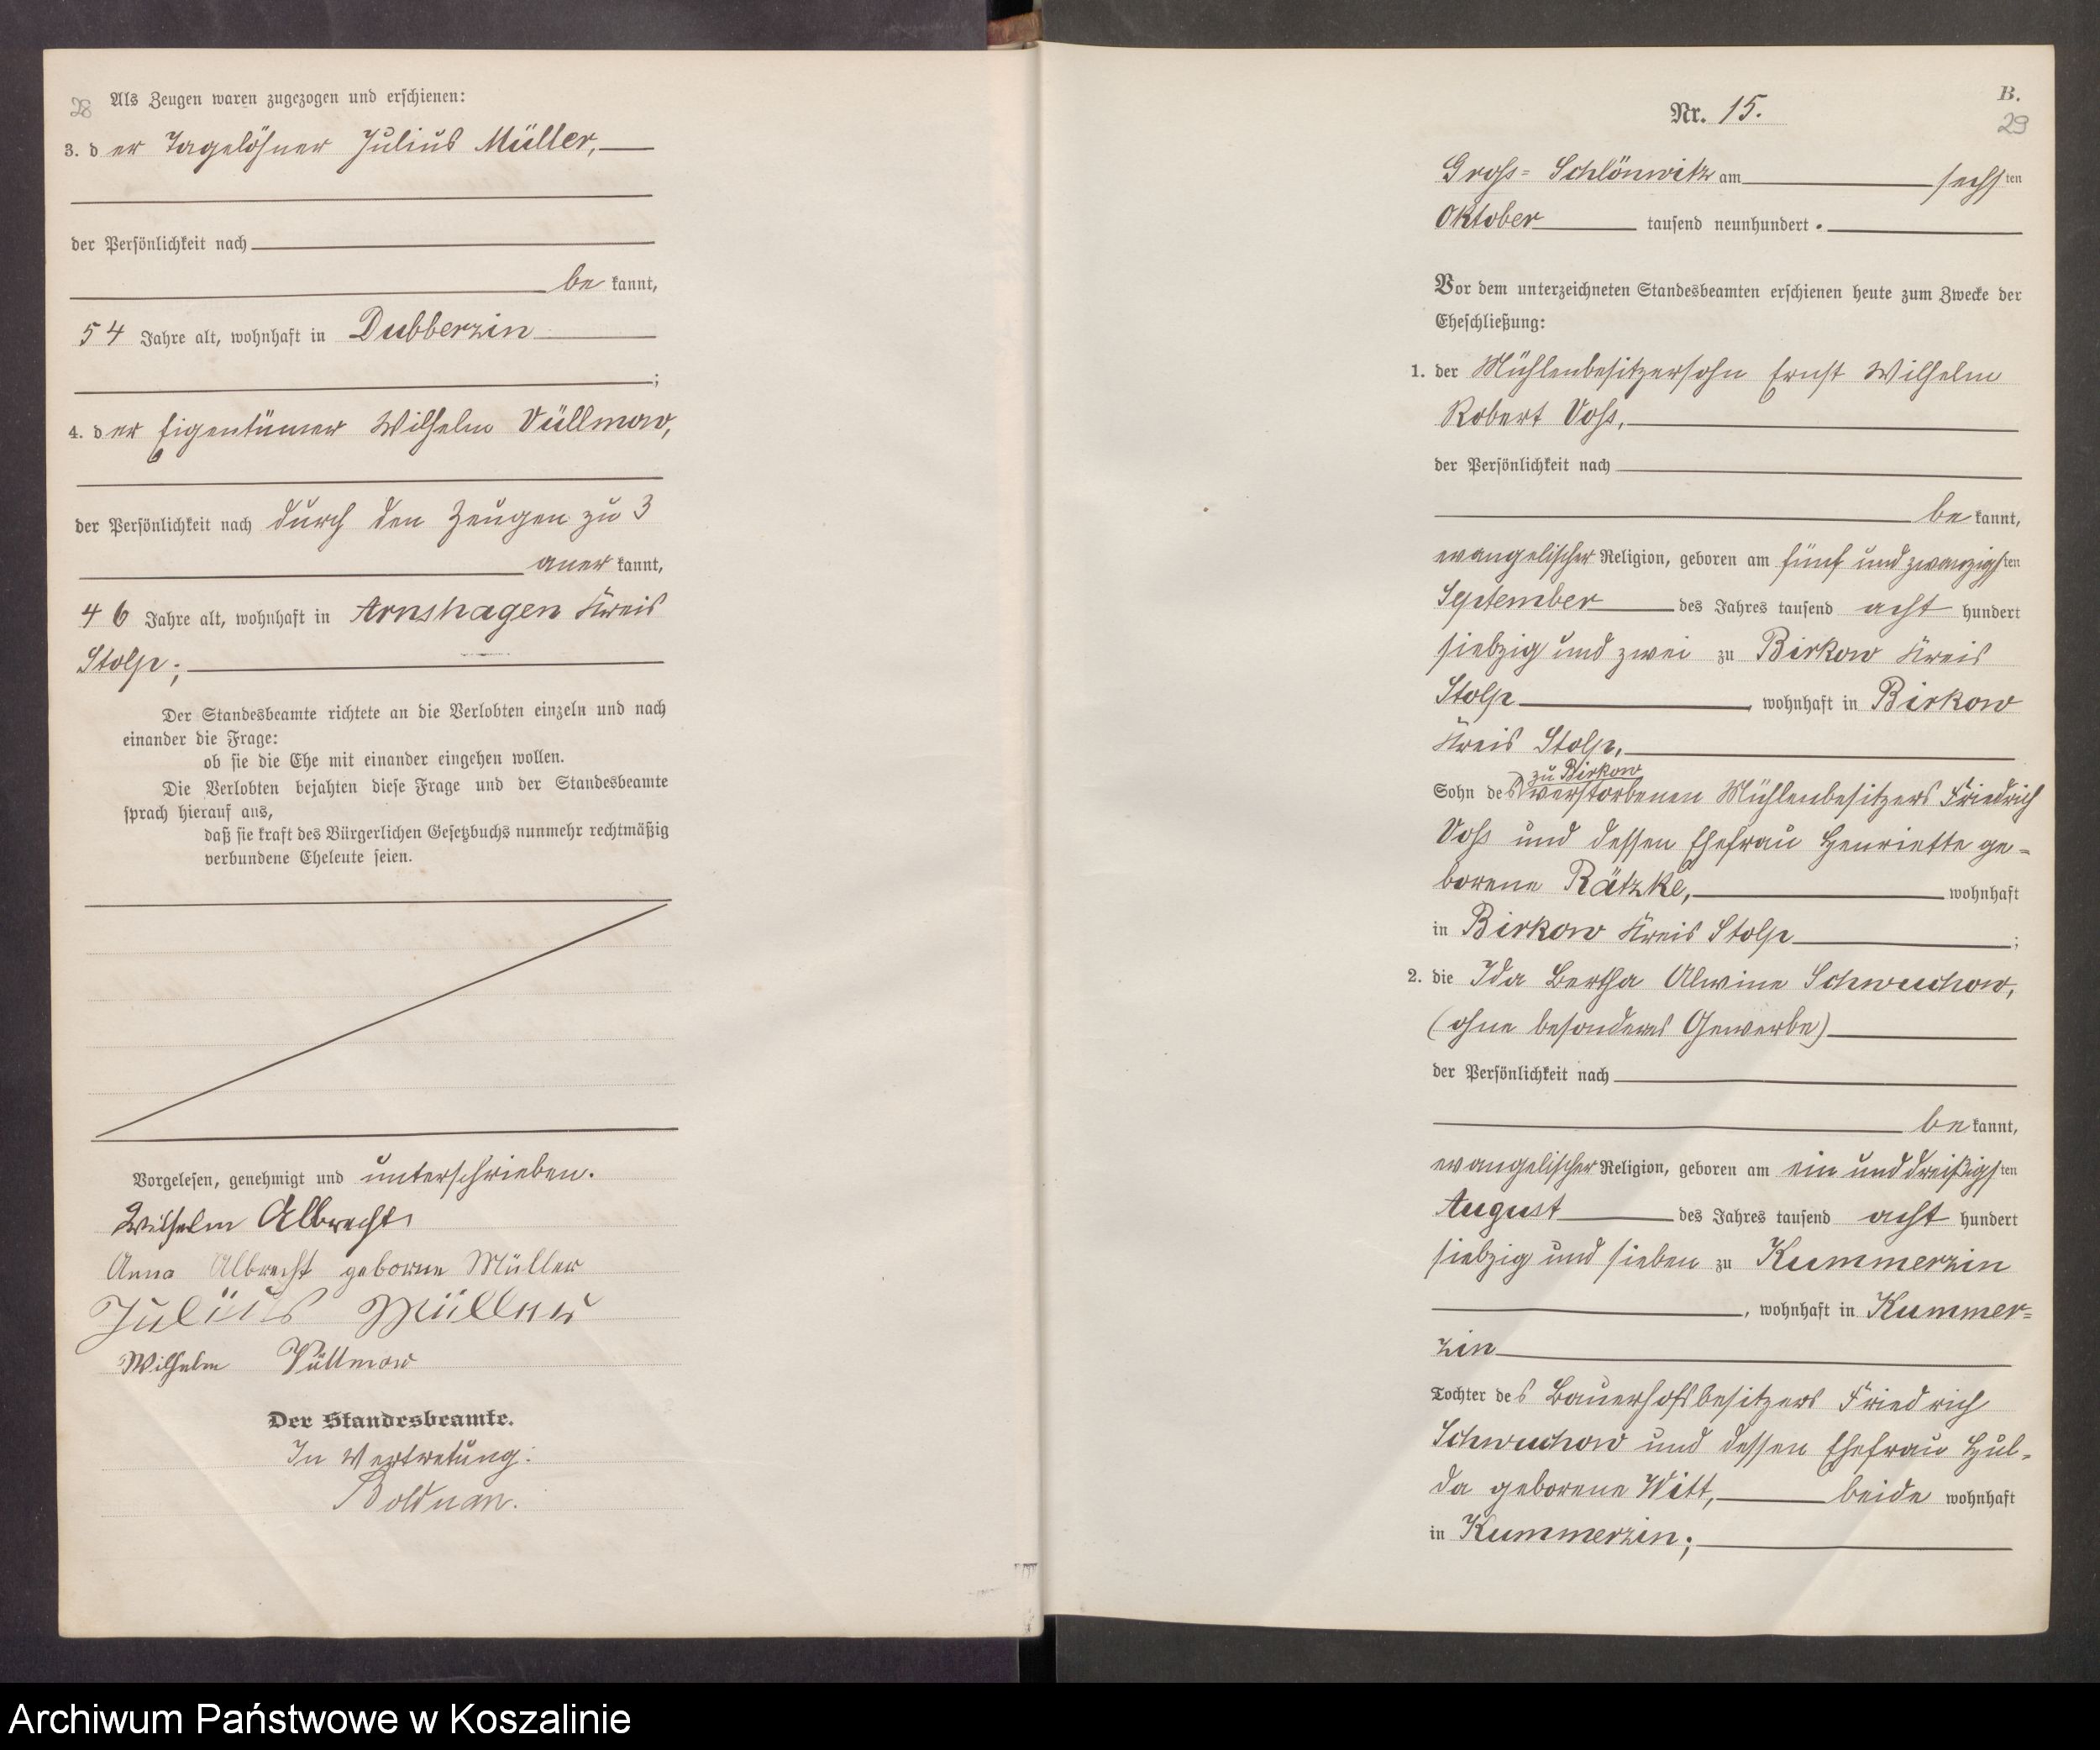 28
Als Zeugen waren zugezogen und erschienen:
3. der Tagelöhner Julius Müller,
der Persönlichkeit nach
be kannt,
54 Jahre alt, wohnhaft in Dubberzin
;
4. der Eigentümer Wilhelm Vüllmow,
der Persönlichkeit nach durch den Zeugen zu 3
aner kannt,
46 Jahre alt, wohnhaft in Arnshagen Kreis
Stolp;
Der Standesbeamte richtete an die Verlobten einzeln und nach
einander die Frage:
ob sie die Ehe mit einander eingehen wollen.
Die Verlobten bejahten diese Frage und der Standesbeamte
sprach hierauf aus,
daß sie kraft des Bürgerlichen Gesetzbuchs nunmehr rechtmäßig
verbundene Eheleute seien.
Vorgelesen, genehmigt und unterschrieben.
Wilhelm Albrecht
Anna Albrecht geborne Müller
Julius Müller
Wilhelm Vüllmow
Der Standesbeamte.
In Vertretung:
Bolduan.
B.
29
Nr. 15.
Gross-Schlönwitz am sechsten
Oktober tausend neunhundert.
Vor dem unterzeichneten Standesbeamten erschienen heute zum Zwecke der
Eheschließung:
1. der Mühlenbesitzersohn Ernst Wilhelm
Robert Voss,
der Persönlichkeit nach
be kannt,
evangelischer Religion, geboren am fünf und zwanzigsten
September des Jahres tausend acht hundert
siebzig und zwei zu Birkow Kreis
Stolp, wohnhaft in Birkow
Kreis Stolp,
zu Birkow
Sohn des verstorbenen Mühlenbesitzers Friedrich
Voss und dessen Ehefrau Henriette ge-
borene Rätzke, wohnhaft
in Birkow Kreis Stolp;
2. die Ida Bertha Alwine Schwuchow,
(ohne besonderes Gewerbe)
der Persönlichkeit nach
be kannt,
evangelischer Religion, geboren am ein und dreißigsten
August des Jahres tausend acht hundert
siebzig und sieben zu Kummerzin
, wohnhaft in Kummer-
zin
Tochter des Bauerhofsbesitzers Friedrich
Schwuchow und dessen Ehefrau Hul-
da geborene Witt, beide wohnhaft
in Kummerzin;
Archiwum Państwowe w Koszalinie